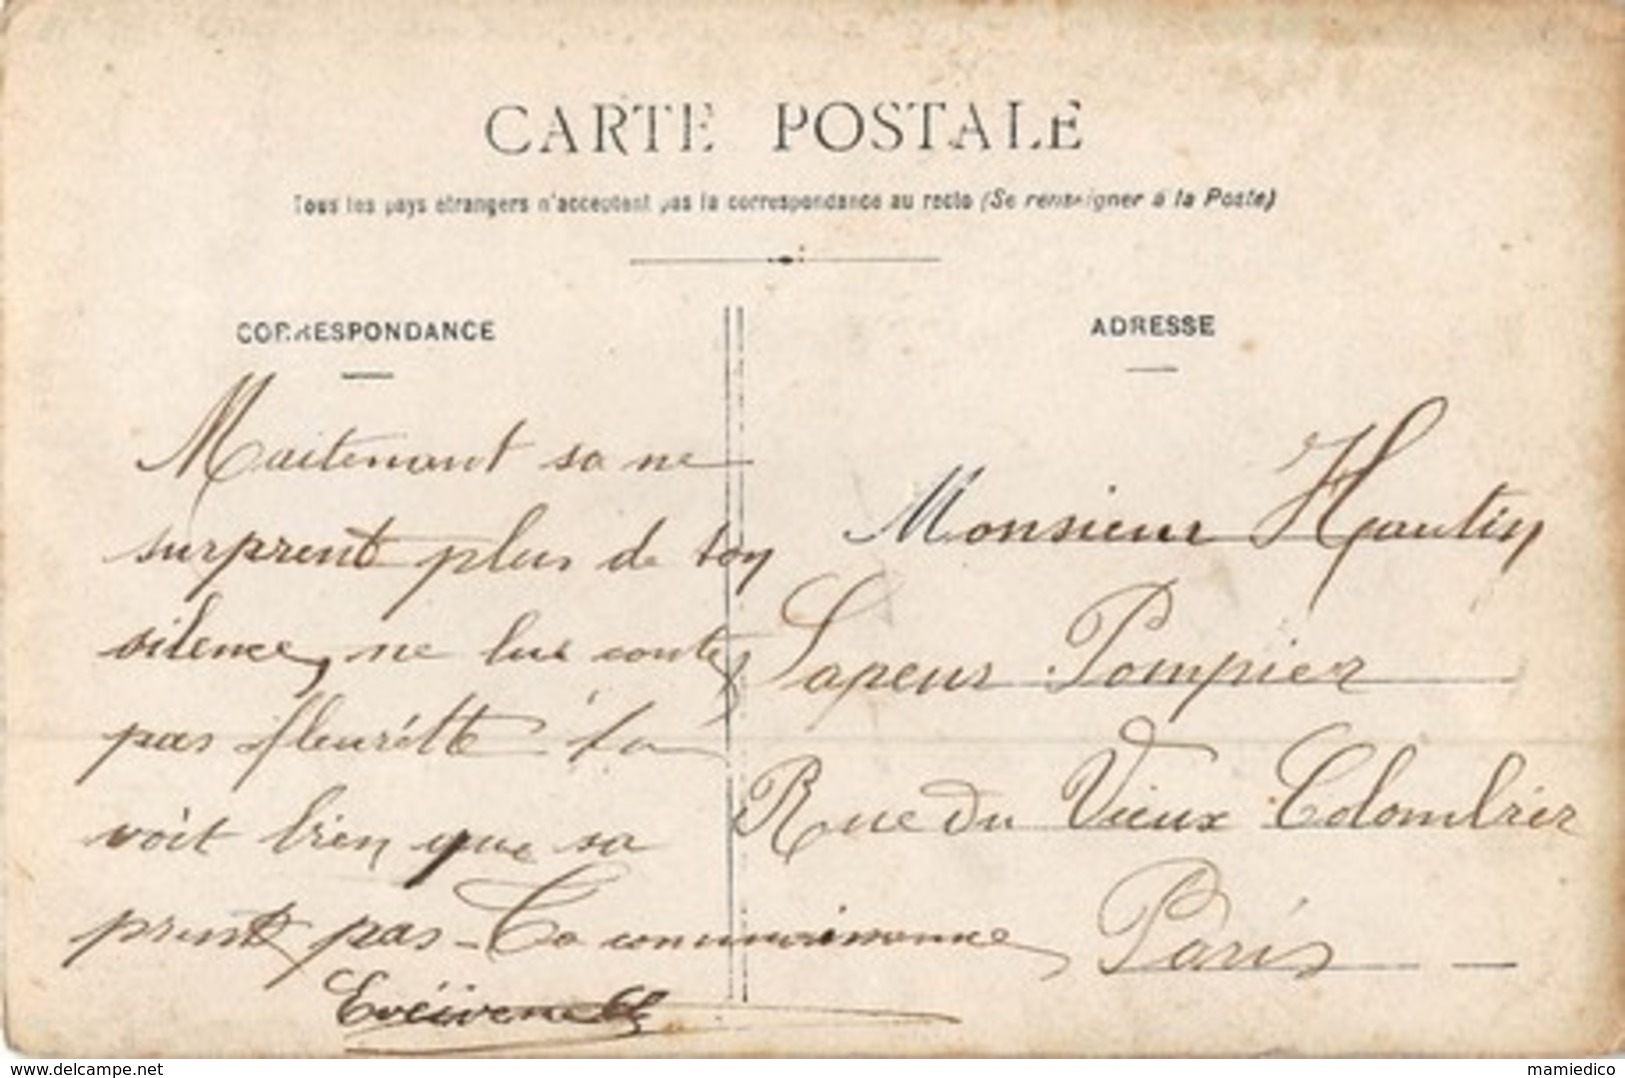 CARTE POSTALE
Tous les pays étrangers n'acceptent pas la correspondance au recto (Se renseigner à la Poste)
CORRESPONDANCE
Maitenant sa ne
surprent plus de ton
silence, ne lui contes
pas fleurétte
voit bien que sa
prent pas - Ta connaissance
ADRESSE
Monsieur Hautin
Sapeur Pompier
Rue du Vieux Colombier
Paris
www.delcampe.net
mamiedico